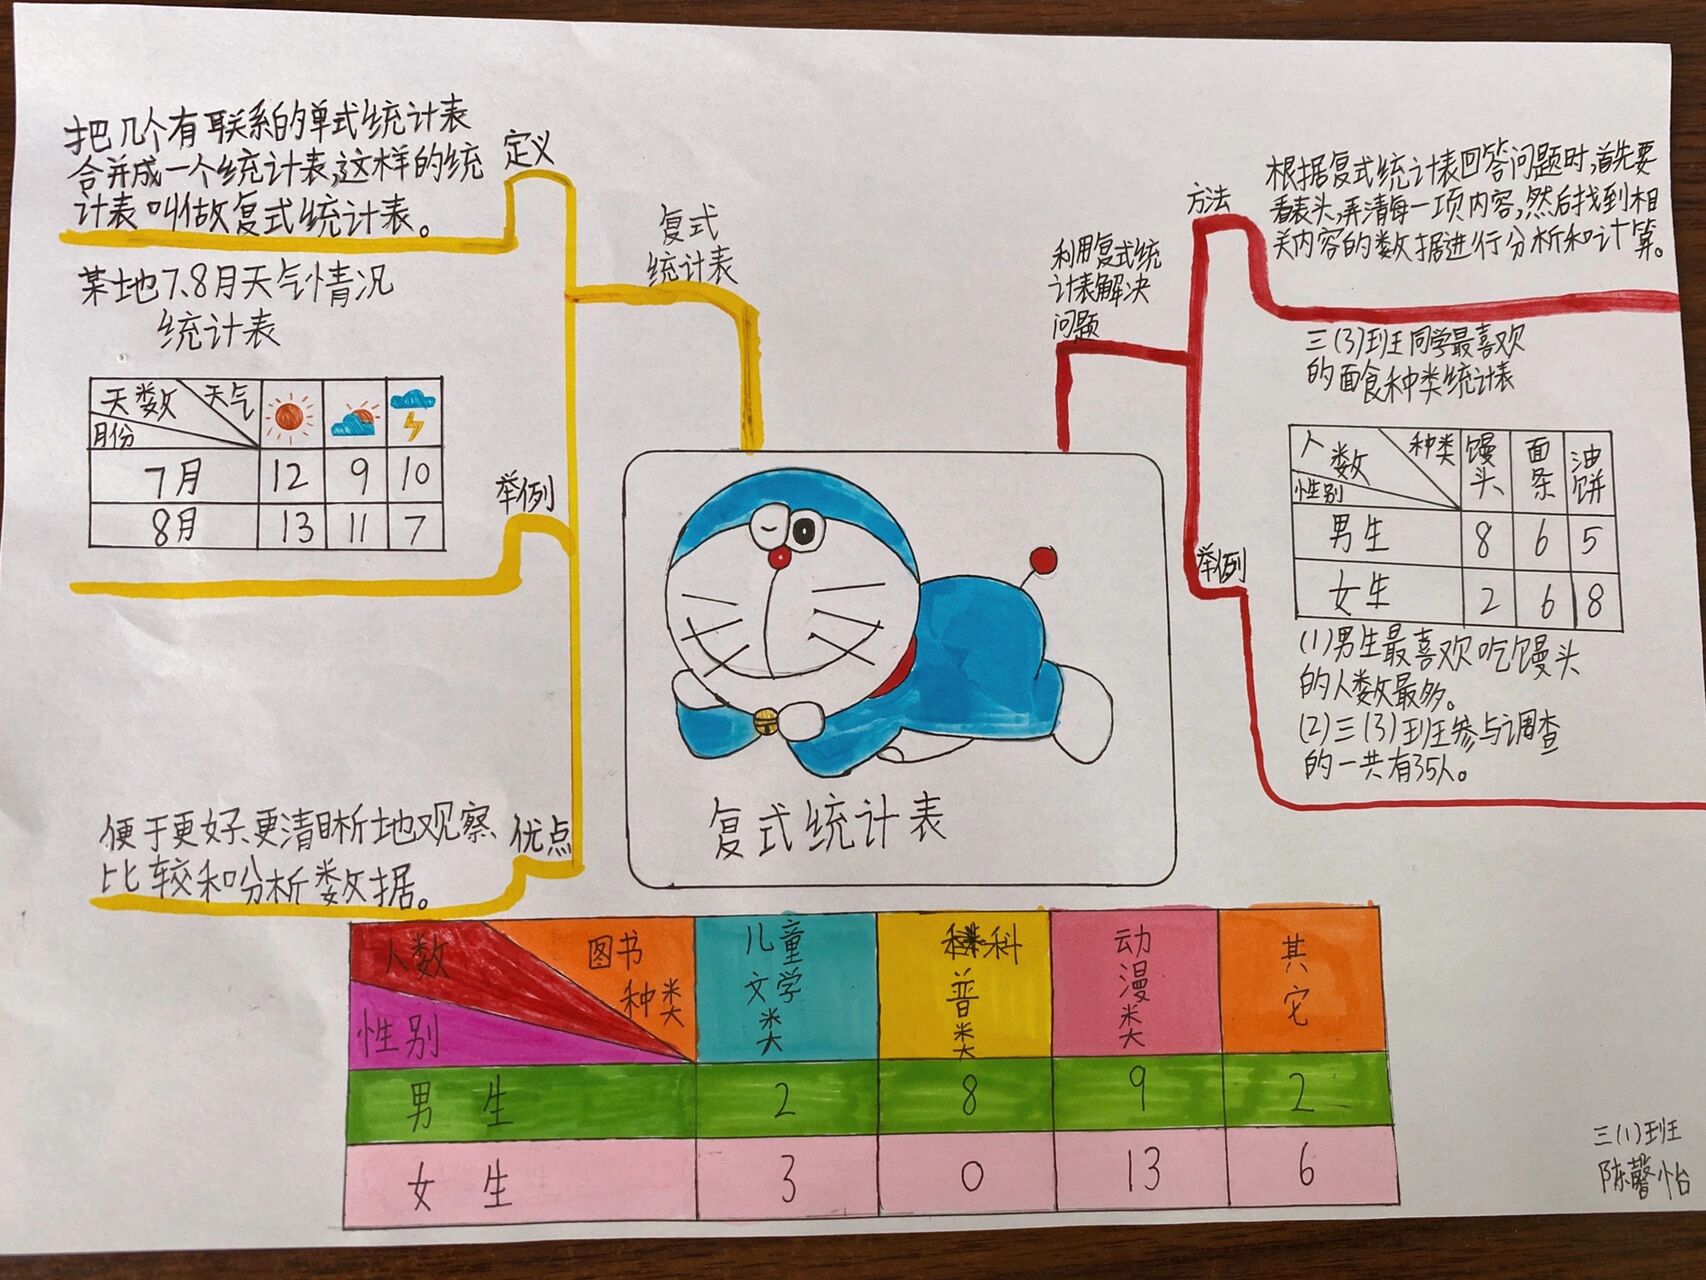 把几个有联系的单式统计表
合并成一个统计表,这样的统
计表叫做复式统计表。
定义
复式
统计表
某地7、8月天气情况
统计表
天数 天气
月份
7月 12 9 10
8月 13 11 7
举例
便于更好、更清晰地观察、
比较和分析数据。
优点
利用复式统
计表解决
问题
方法
根据复式统计表回答问题时,首先要
看表头,弄清每一项内容,然后找到相
关内容的数据进行分析和计算。
三(3)班同学最喜欢
的面食种类统计表
人数 种类 馒头 面条 油饼
性别
男生 8 6 5
女生 2 6 8
举例
(1)男生最喜欢吃馒头
的人数最多。
(2)三(3)班参与调查
的一共有35人。
复式统计表
人数 图书种类 儿童文学类 科普类 动漫类 其它
性别
男生 2 8 9 2
女生 3 0 13 6
三(1)班
陈馨怡